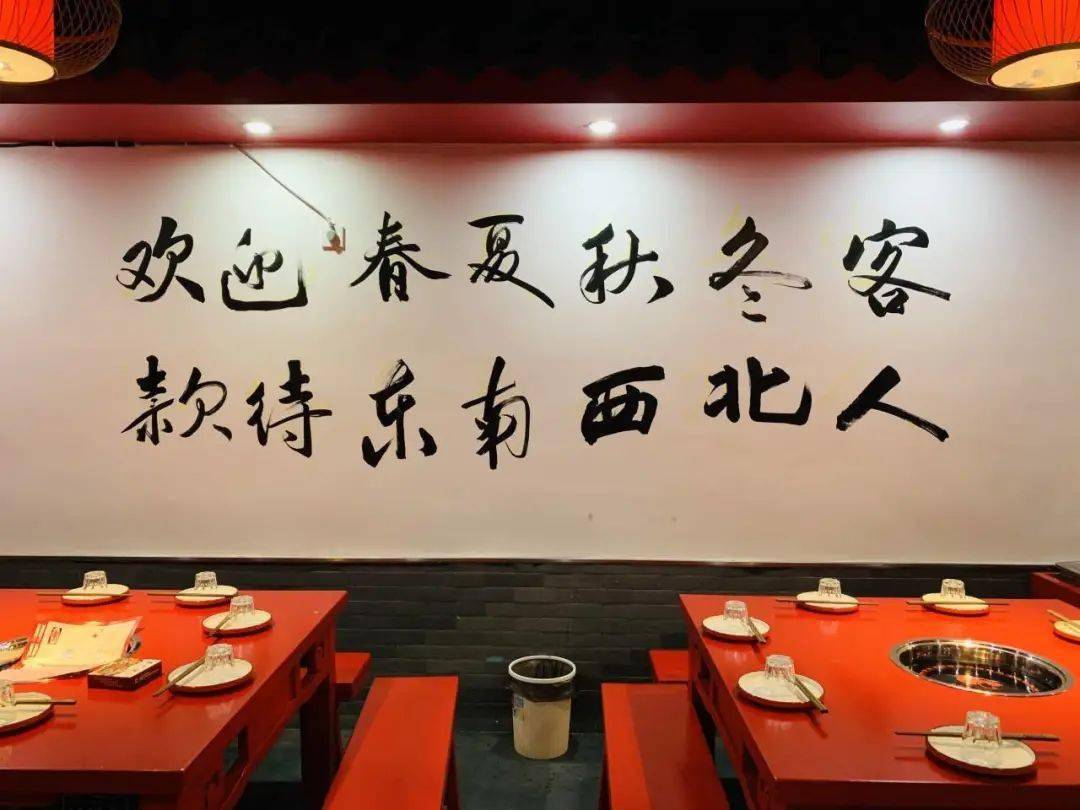 欢迎春夏秋冬客
款待东南西北人